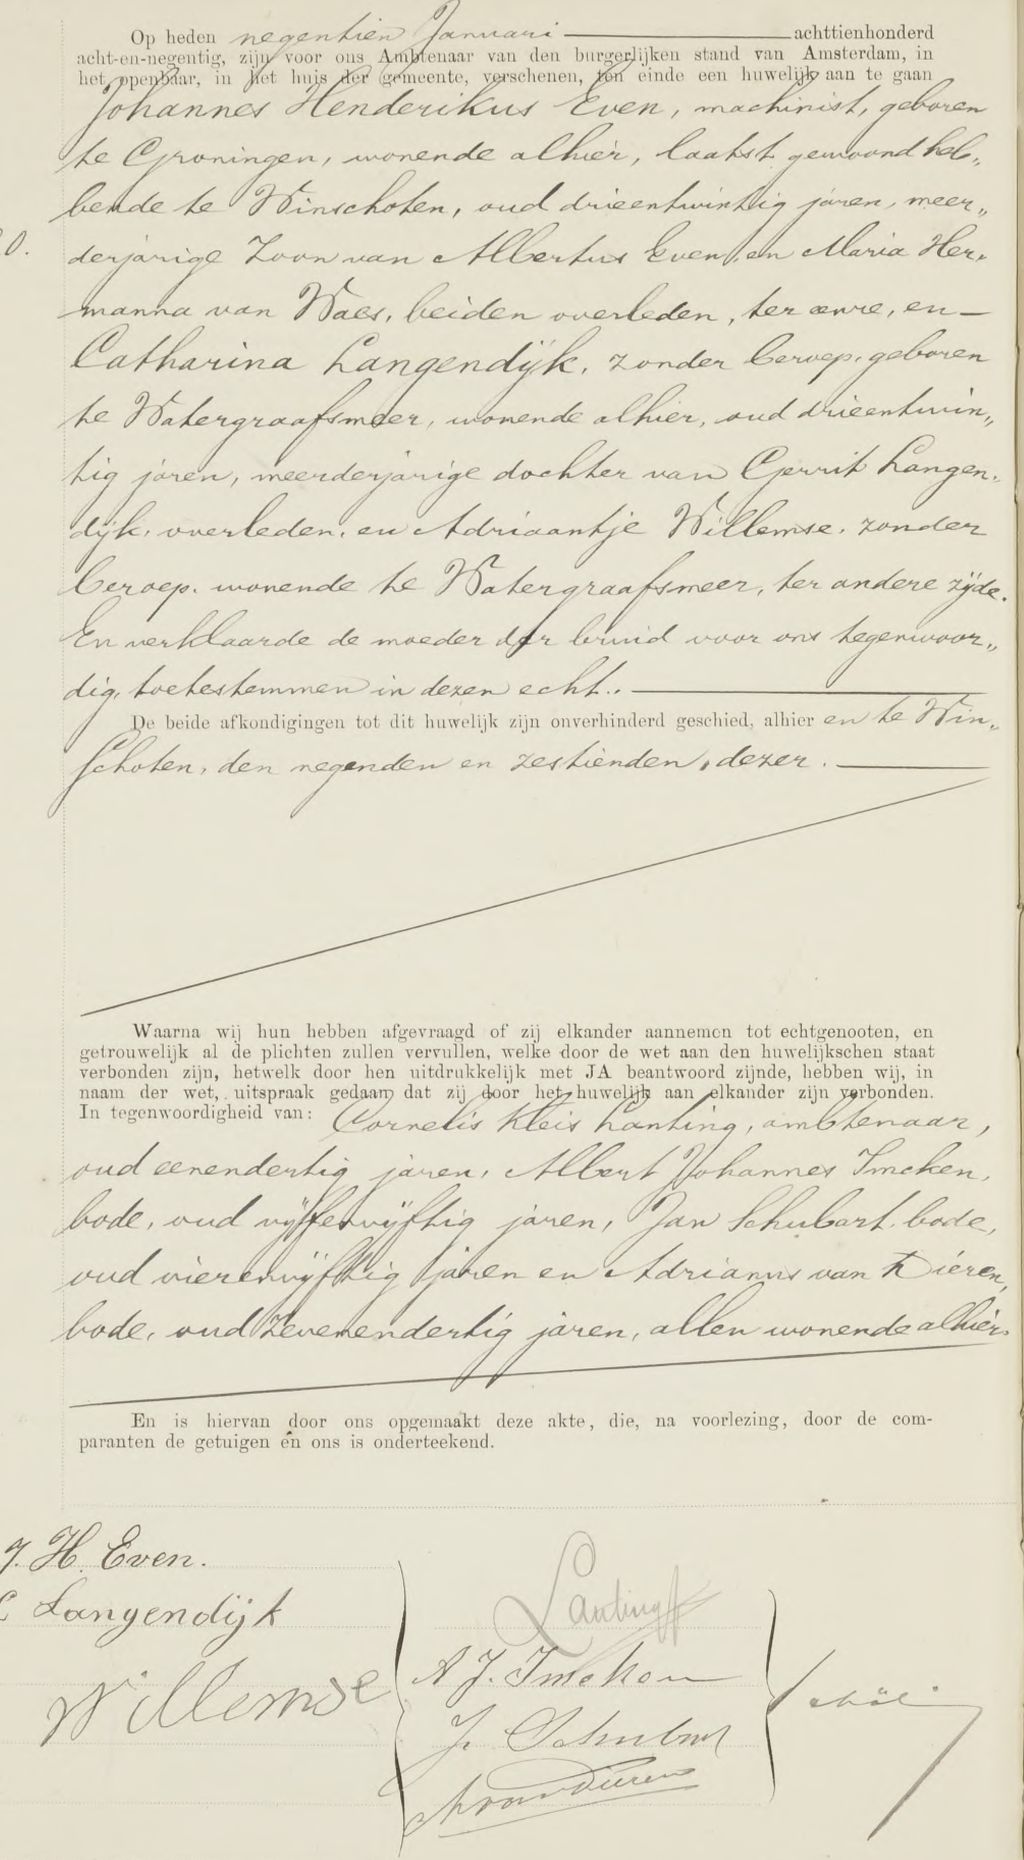 Op heden negentien Januari achttienhonderd
acht-en-negentig, zijn voor ons Ambtenaar van den burgerlijken stand van Amsterdam, in
het openbaar, in het huis der gemeente, verschenen, ten einde een huwelijk aan te gaan
Johannes Henderikus Even, machinist, geboren
te Groningen, wonende alhier, laatst gewoond heb„
bende te Winschoten, oud drieentwintig jaren, meer„
0. derjarige Zoon van Albertus Even, en Maria Her„
manna van Waes, beiden overleden, ter eenre, en
Catharina Langendijk, zonder beroep, geboren
te Watergraafsmeer, wonende alhier, oud drieentwin„
tig jaren, meerderjarige dochter van Gerrit Langen„
dijk, overleden, en Adriaantje Willemse, zonder
beroep, wonende te Watergraafsmeer, ter andere zijde.
En verklaarde de moeder der bruid voor ons tegenwoor„
dig, toetestemmen in dezen echt.
De beide afkondigingen tot dit huwelijk zijn onverhinderd geschied, alhier en te Win„
schoten, den negenden en zestienden, dezer.
Waarna wij hun hebben afgevraagd of zij elkander aannemen tot echtgenooten, en
getrouwelijk al de plichten zullen vervullen, welke door de wet aan den huwelijkschen staat
verbonden zijn, hetwelk door hen uitdrukkelijk met JA beantwoord zijnde, hebben wij, in
naam der wet, uitspraak gedaan dat zij door het huwelijk aan elkander zijn verbonden.
In tegenwoordigheid van: Cornelis Kleis Lanting, ambtenaar,
oud eenendertig jaren, Albert Johannes Imeken,
bode, oud vijfenvijftig jaren, Jan Schubart, bode,
oud vierenvijftig jaren en Adrianus van Dieren,
bode, oud zevenendertig jaren, allen wonende alhier.
En is hiervan door ons opgemaakt deze akte, die, na voorlezing, door de com-
paranten de getuigen en ons is onderteekend.
J. H. Even.
C Langendijk
Willemse
Lanting
A J. Imeken
J. Schubart
A van Dieren